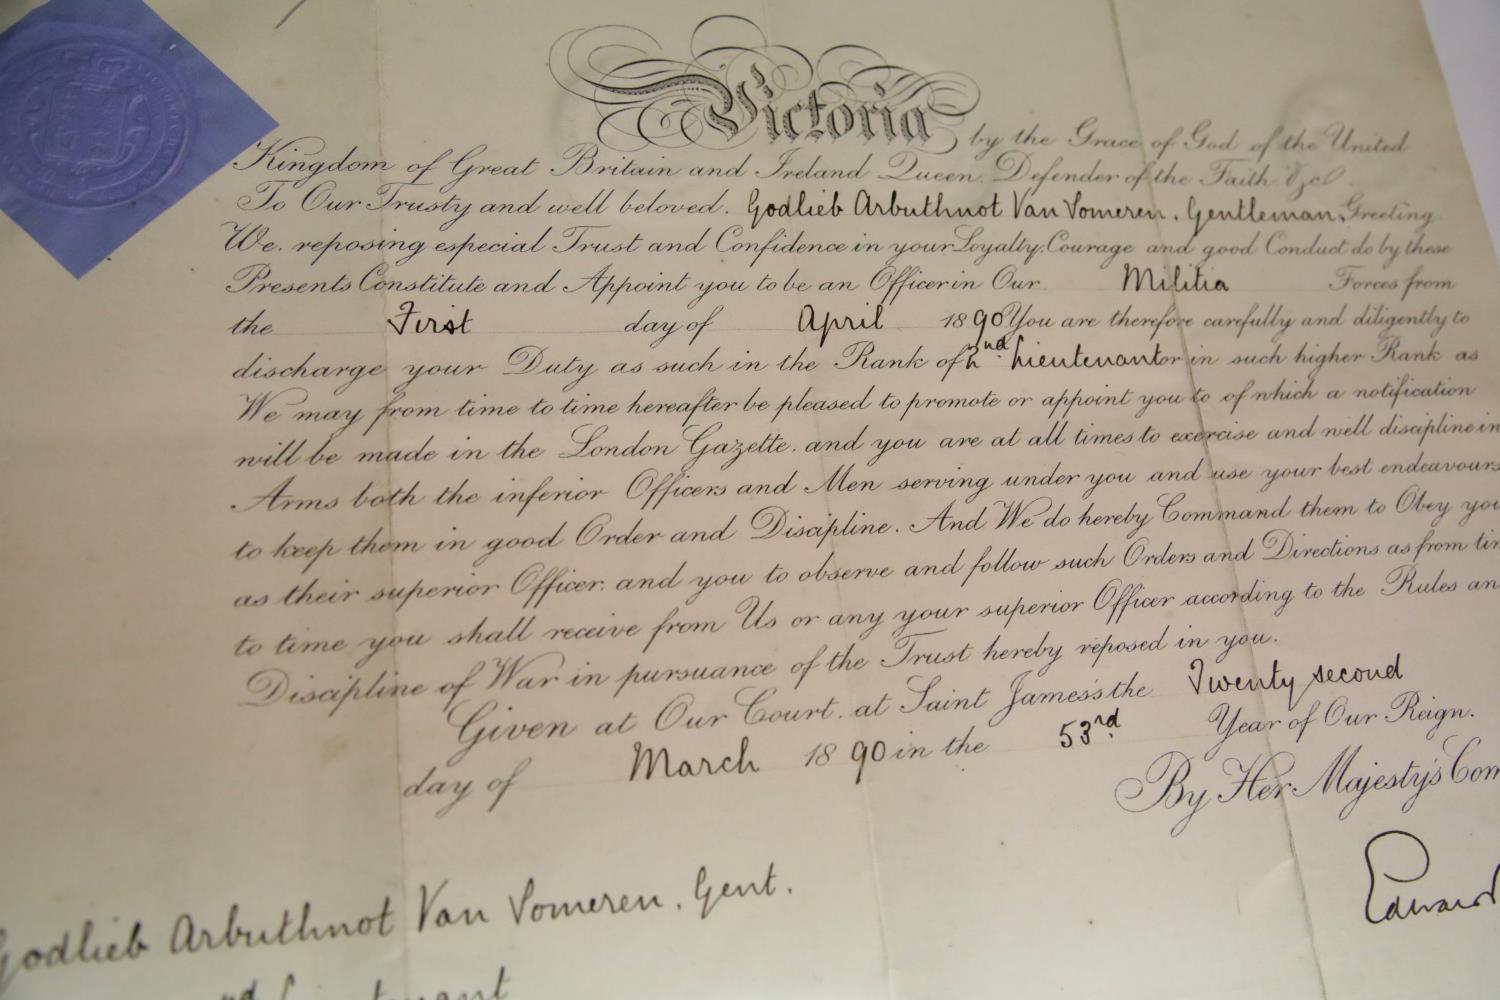 Victoria by the Grace of God of the United
Kingdom of Great Britain and Ireland Queen. Defender of the Faith. &c.
To Our Trusty and well beloved. Godlieb Arbuthnot Van Someren, Gentleman, Greeting
We. reposing especial Trust and Confidence in your Loyalty, Courage and good Conduct do by these
Presents Constitute and Appoint you to be an Officer in Our Militia Forces from
the First day of April 1890 You are therefore carefully and diligently to
discharge your Duty as such in the Rank of 2nd. Lieutenant or in such higher Rank as
We may from time to time hereafter be pleased to promote or appoint you to of which a notification
will be made in the London Gazette. and you are at all times to exercise and well discipline in
Arms both the inferior Officers and Men serving under you and use your best endeavours
to keep them in good Order and Discipline. And We do hereby Command them to Obey you
as their superior Officer. and you to observe and follow such Orders and Directions as from tim
to time you shall receive from Us or any your superior Officer according to the Rules an
Discipline of War in pursuance of the Trust hereby reposed in you.
Given at Our Court. at Saint James's the Twenty second
day of March 1890 in the 53rd. Year of Our Reign.
By Her Majesty's Com
Edward
Godlieb Arbuthnot Van Someren, Gent.
nd Lieutenant